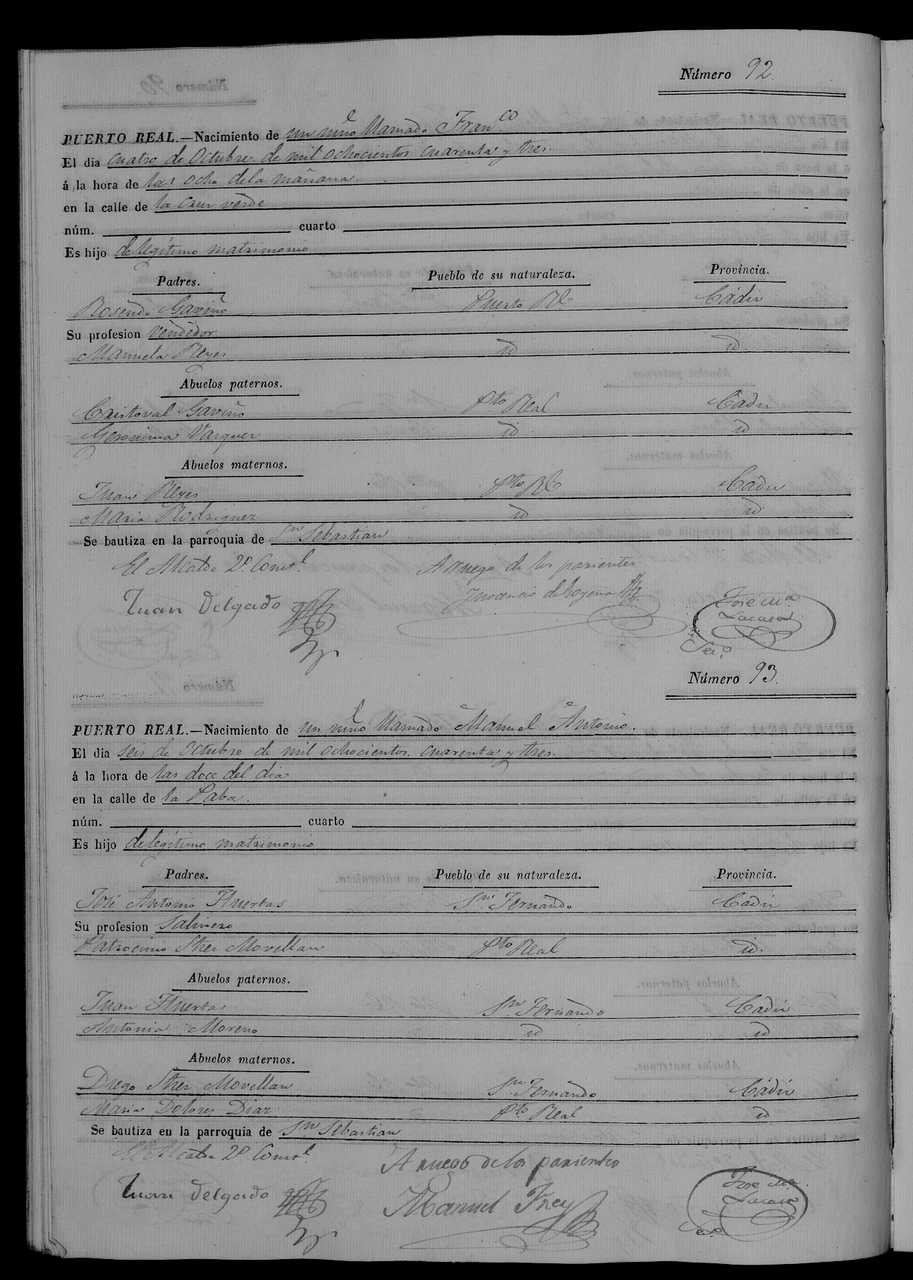 Número 92
PUERTO REAL.—Nacimiento de un niño llamado Franco
El dia cuatro de Octubre de mil ochocientos cuarenta y tres.
á la hora de las ocho de la mañana
en la calle de la Cruz verde
núm. cuarto
Es hijo de legítimo matrimonio
Padres. Pueblo de su naturaleza. Provincia.
Rosendo Gaviño Puerto Rl Cádiz
Su profesion vendedor
Manuela Reyes id id.
Abuelos paternos.
Cristoval Gaviño Pto Real Cádiz
Geronima Vazquez id id
Abuelos maternos.
Juan Reyes Pto Rl Cádiz
Maria Rodriguez id id
Se bautiza en la parroquia de Sn Sebastian
El Alcalde 2º Const. A ruego de los parientes
Juan Delgado Inocencio de Jose Ma
Lacasa
Srio
Número 93.
PUERTO REAL.—Nacimiento de un niño llamado Manuel Antonio.
El dia seis de Octubre de mil ochocientos cuarenta y tres.
á la hora de las doce del dia
en la calle de la Paba.
núm. cuarto
Es hijo de legítimo matrimonio
Padres. Pueblo de su naturaleza. Provincia.
José Antonio Huertas Sn Fernando Cádiz
Su profesion Salinero
Patrocinio Shez Movellan Pto Real id.
Abuelos paternos.
Juan Huertas Sn Fernando Cádiz
Antonia Moreno id id
Abuelos maternos.
Diego Shez Movellan Sn Fernando Cádiz
Maria Dolores Diaz Pto Real id
Se bautiza en la parroquia de Sn Sebastian
El Alcalde 2º Const. A ruego de los parientes
Juan Delgado Manuel Frey Jose Ma
Lacasa